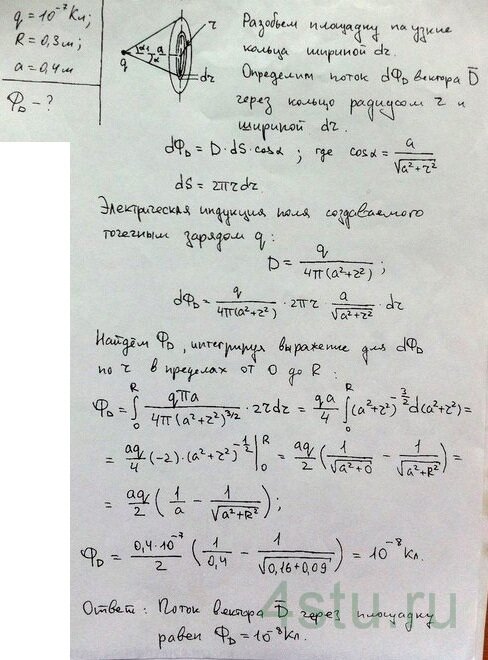 q = 10⁻⁷ Кл;
R = 0,3 м;
a = 0,4 м
Φ_D – ?
α
a
α
q
r
dr
Разобьем площадку на узкие
кольца шириной dr.
Определим поток dΦ_D вектора D̄
через кольцо радиусом r и
шириной dr.
dΦ_D = D · dS · cosα ; где cosα = a/√(a²+r²)
dS = 2πrdr
Электрическая индукция поля создаваемого
точечным зарядом q :
D = q/(4π(a²+r²)) ;
dΦ_D = q/(4π(a²+r²)) · 2πr · a/√(a²+r²) · dr
Найдём Φ_D, интегрируя выражение для dΦ_D
по r в пределах от 0 до R :
Φ_D = ∫₀ᴿ qπa/(4π(a²+r²)^(3/2)) · 2rdr = qa/4 ∫₀ᴿ (a²+r²)^(-3/2) d(a²+r²) =
= aq/4 (-2)·(a²+r²)^(-1/2) |₀ᴿ = aq/2 (1/√(a²+0) - 1/√(a²+R²)) =
= aq/2 (1/a - 1/√(a²+R²)) ;
Φ_D = 0,4·10⁻⁷/2 (1/0,4 - 1/√(0,16+0,09)) = 10⁻⁸ Кл.
Ответ : Поток вектора D̄ через площадку
равен Φ_D = 10⁻⁸ Кл.
4stu.ru